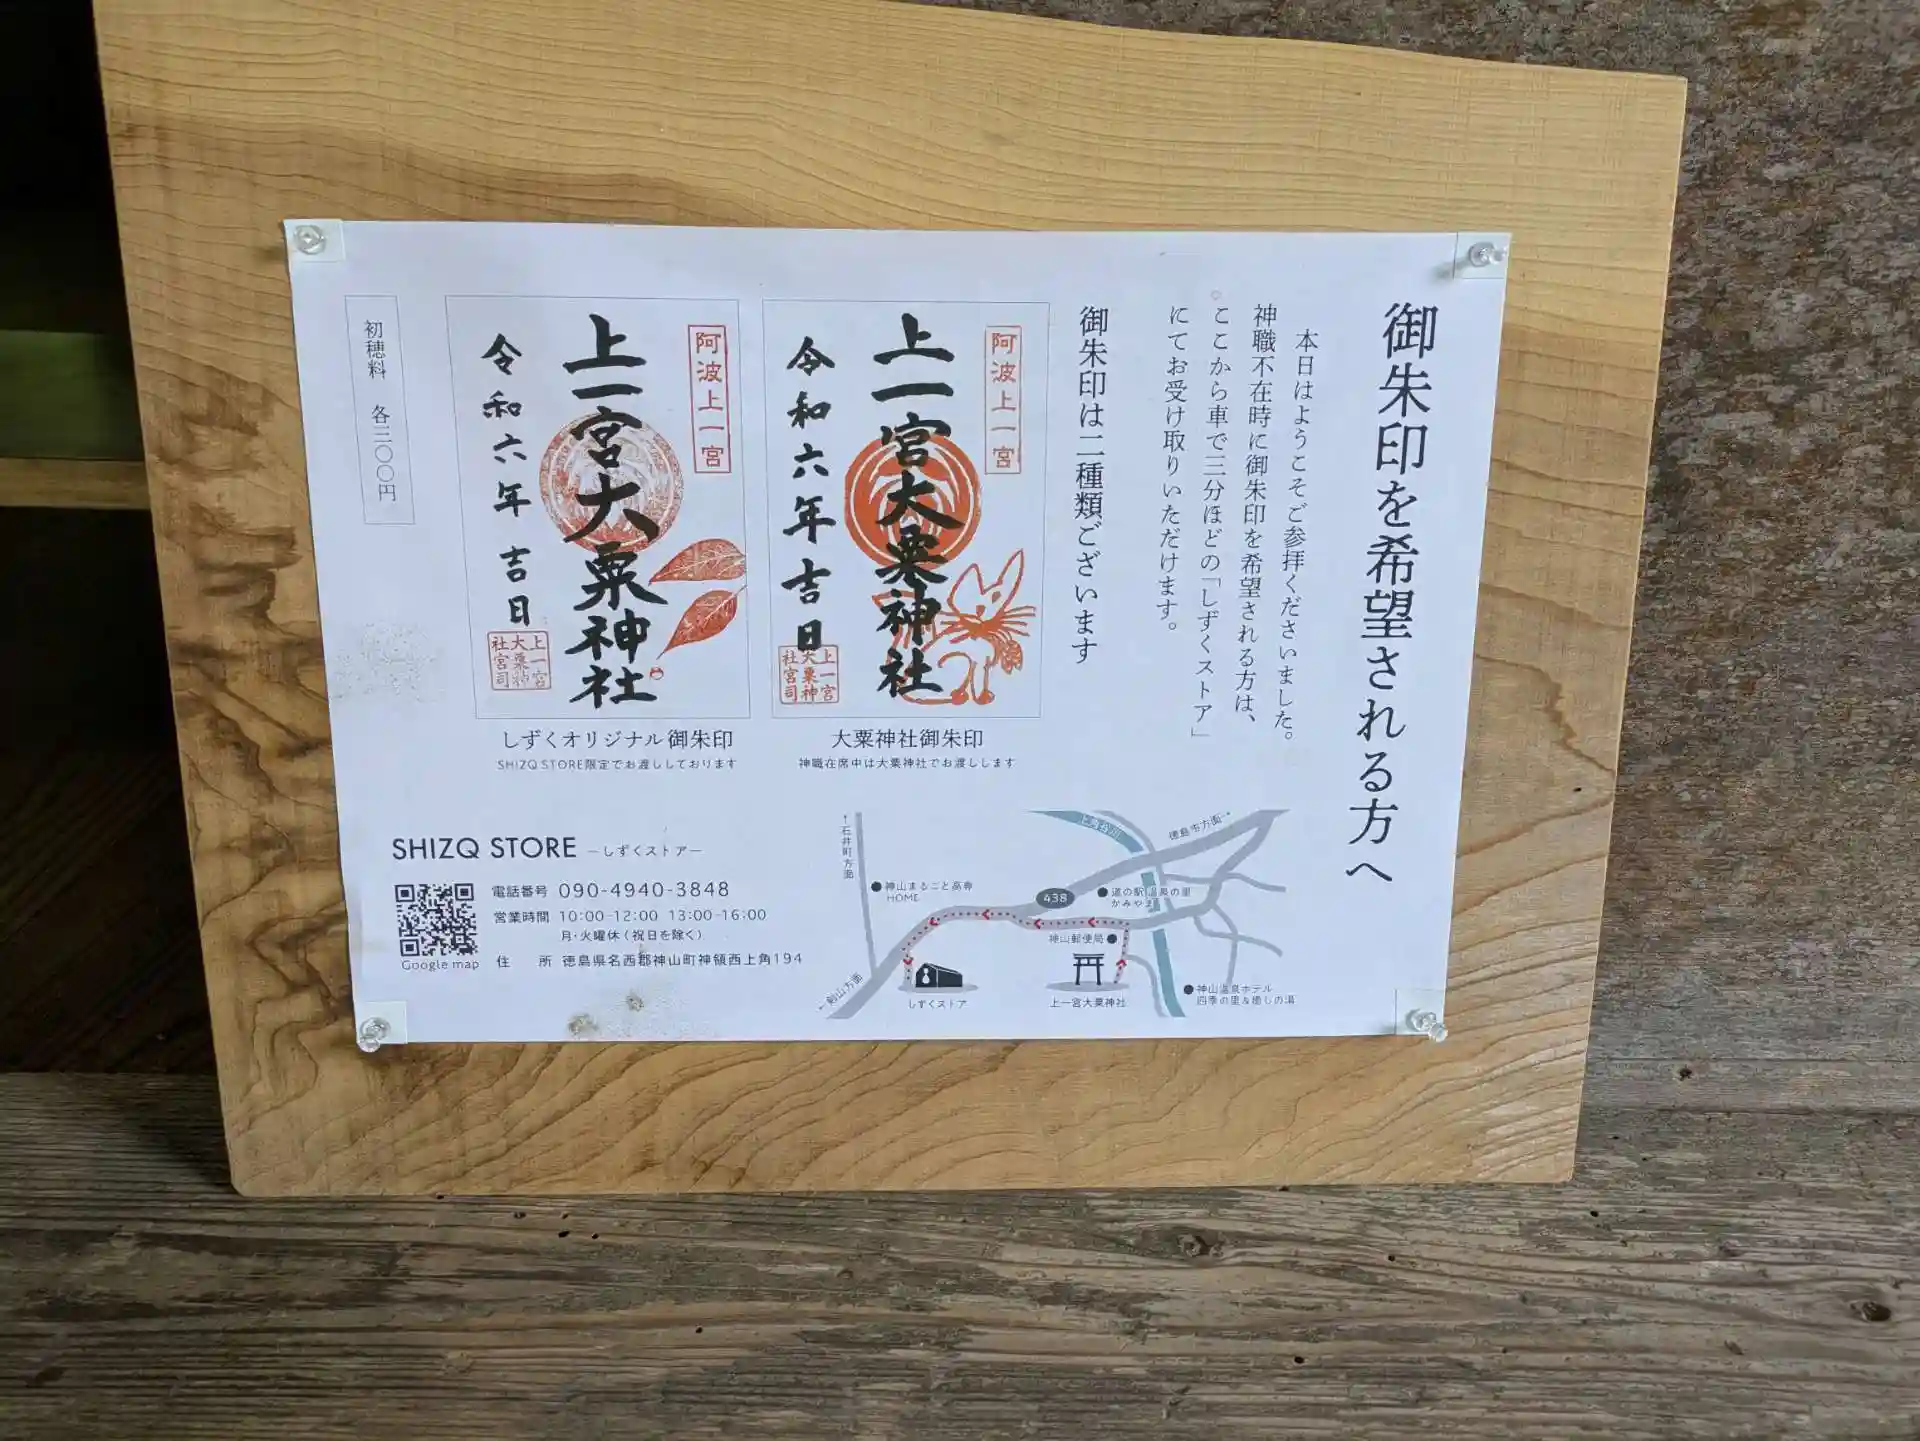 御朱印を希望される方へ
本日はようこそご参拝くださいました。
神職不在時に御朱印を希望される方は、
ここから車で三分ほどの「しずくストア」
にてお受け取りいただけます。
御朱印は二種類ございます
阿波上一宮
上一宮大粟神社
令和六年吉日
上一宮
大粟神
社宮司
大粟神社御朱印
神職在席中は大粟神社でお渡しします
阿波上一宮
上一宮大粟神社
令和六年吉日
上一宮
大粟神
社宮司
しずくオリジナル御朱印
SHIZQ STORE限定でお渡ししております
初穂料 各三〇〇円
SHIZQ STORE －しずくストア－
電話番号 090-4940-3848
営業時間 10:00-12:00 13:00-16:00
月・火曜休（祝日を除く）
住 所 徳島県名西郡神山町神領西上角194
Google map
↑石井町方面
神山まるごと高専
HOME
上角谷川
徳島市方面→
438
道の駅 温泉の里
かみやま
神山郵便局
←剣山方面
しずくストア
上一宮大粟神社
神山温泉ホテル
四季の里&癒しの湯